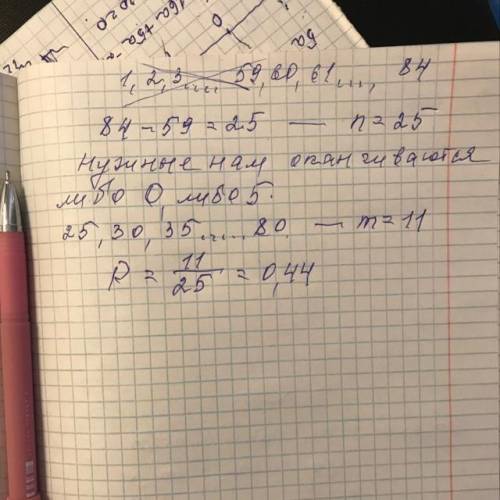 1, 2, 3 .... 59, 60, 61 ...., 84
84 - 59 = 25 — n = 25
нужные нам оканчиваются
либо 0, либо 5.
25, 30, 35 ..... 80 — m = 11
P = 11/25 = 0,44